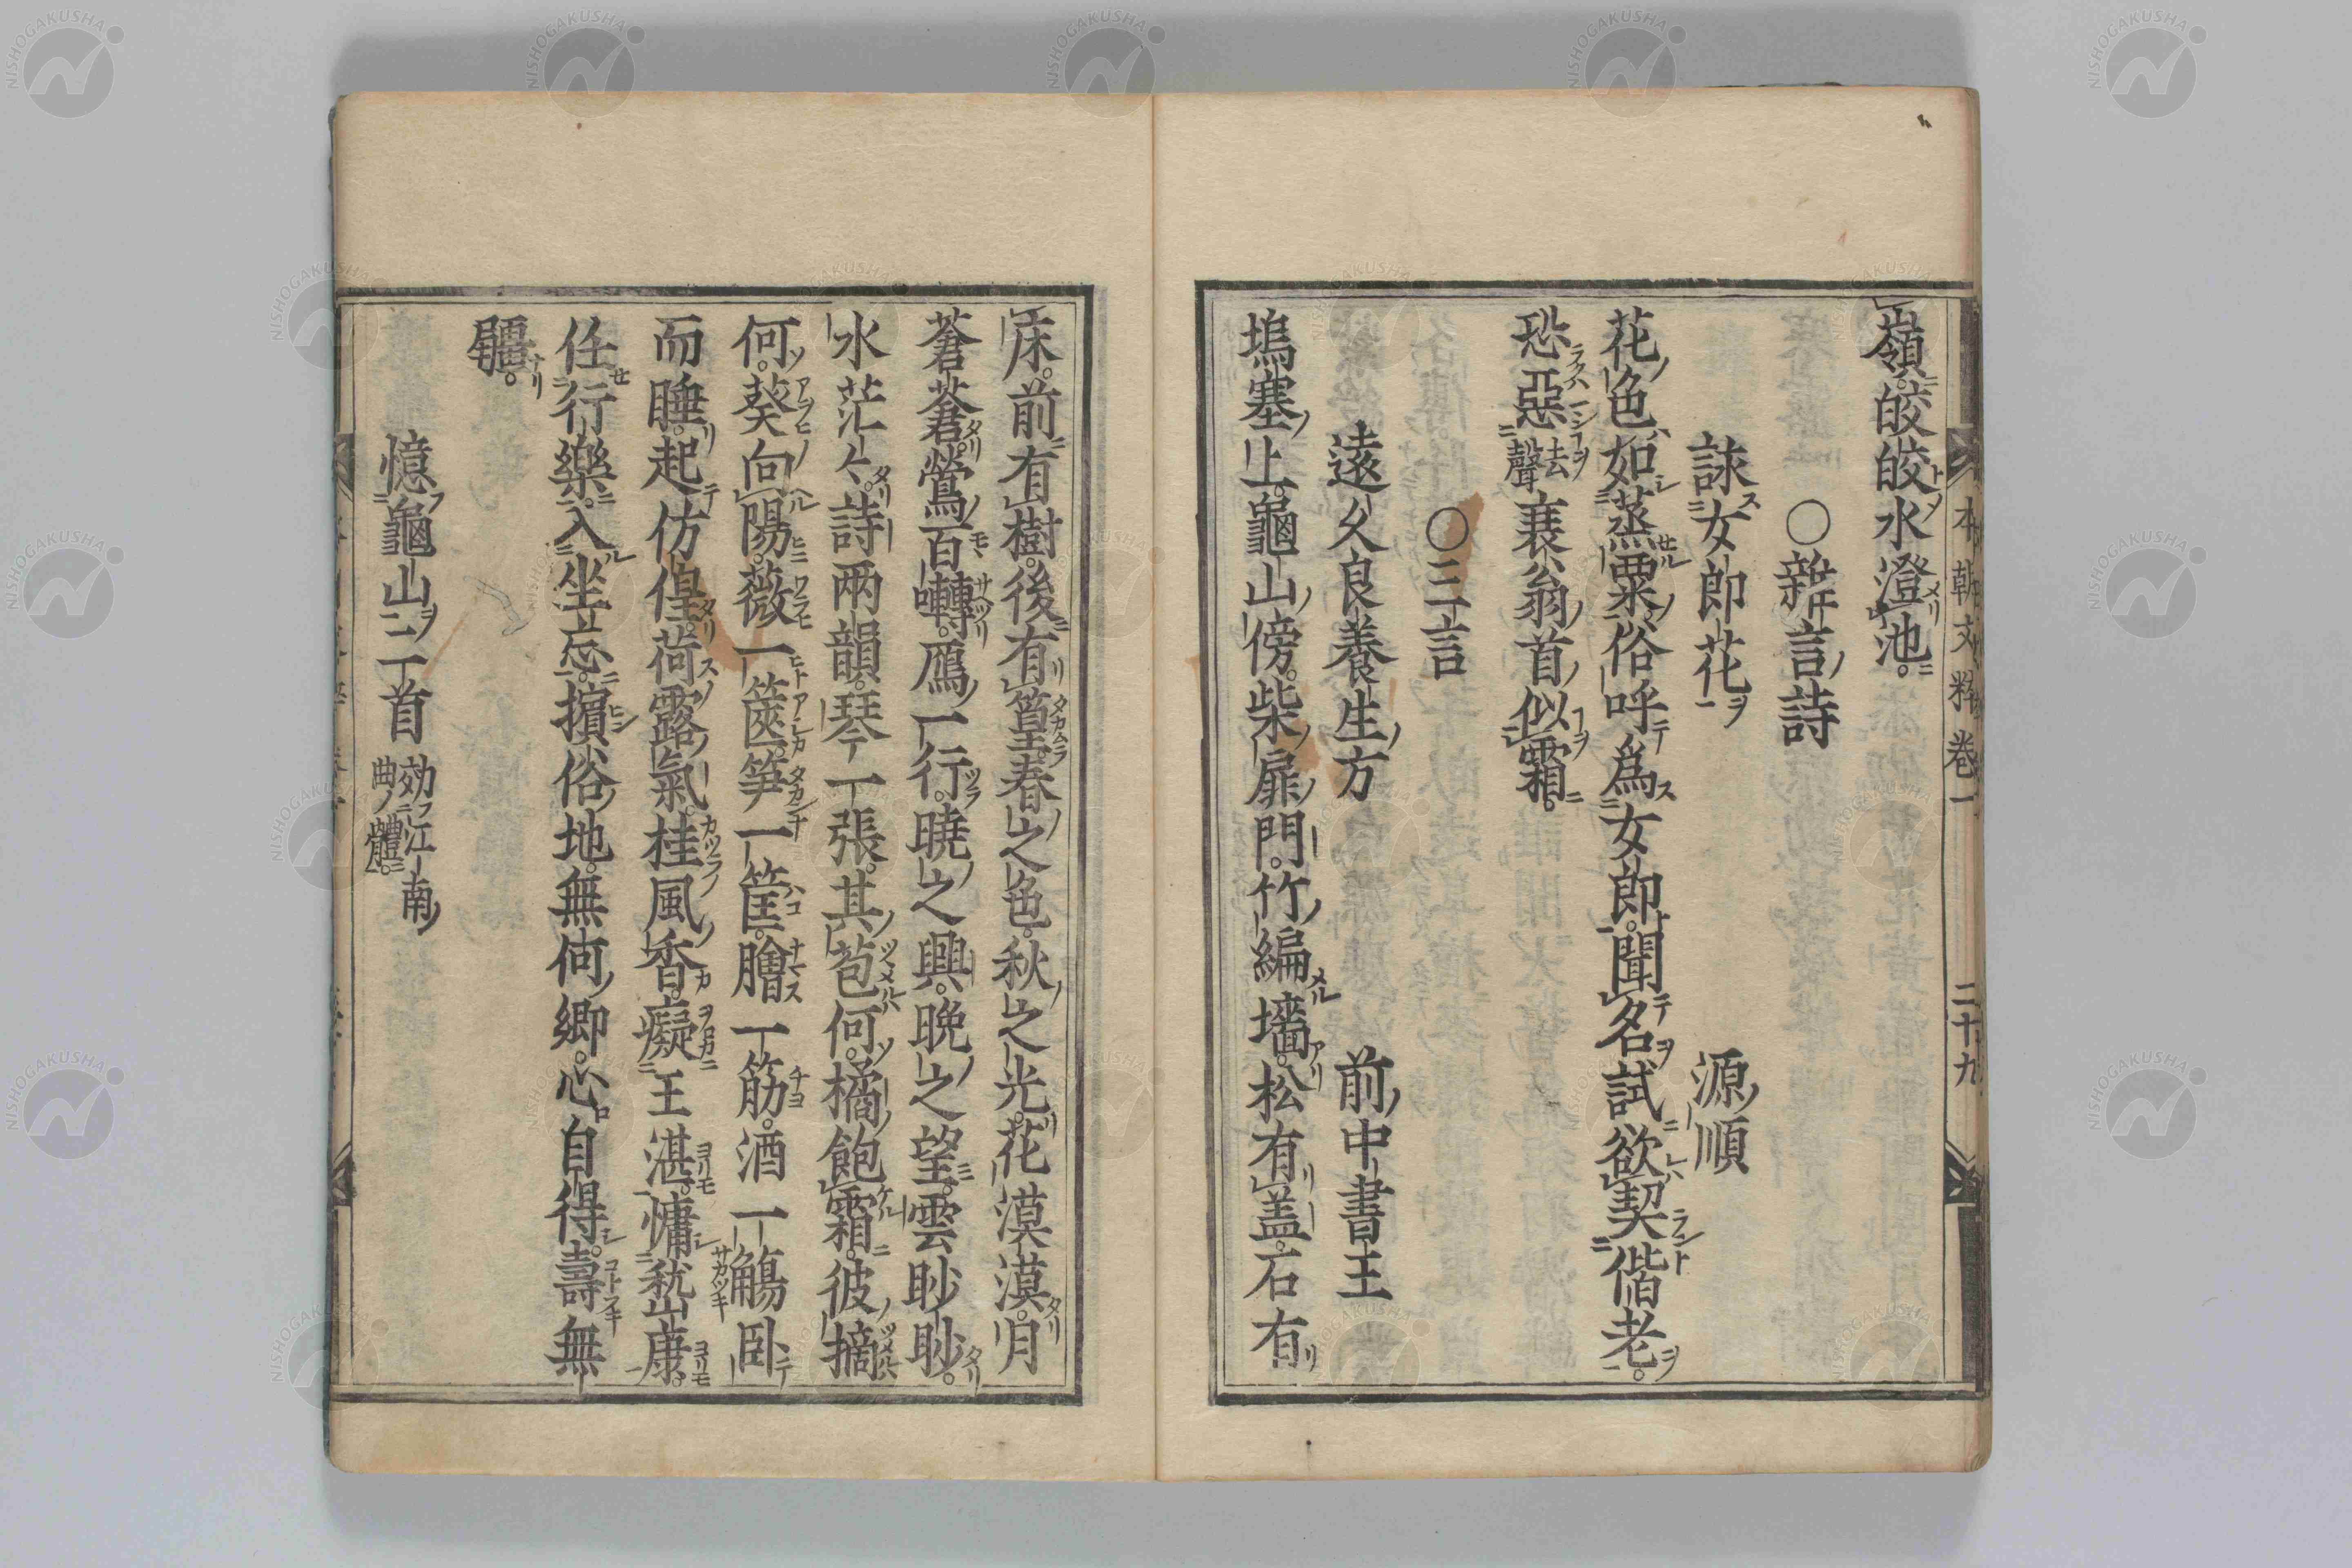 本朝文粹卷一 二十九
嶺。皎皎水澄池。
○雜言詩
詠女郎花 源順
花色如蒸粟。俗呼爲女郎。聞名試欲契偕老。
恐惡去聲衰翁首似霜。
○三言
遠久良養生方 前中書王
塢塞上。龜山傍。柴扉門。竹編墻。松有盖。石有
床。前有樹。後有篁。春之色。秋之光。花漠漠。月
蒼蒼。鶯百囀。鴈一行。曉之興。晚之望。雲眇眇。
水茫々。詩兩韻。琴一張。其苞何。橘飽霜。彼摘
何。葵向陽。薇一篋。笋一筐。膾一筋。酒一觴。臥
而睡。起仿偟。荷露氣。桂風香。癡王湛。慵嵇康。
任行樂。入坐忘。擯俗地。無何鄉。心自得。壽無
疆。
憶龜山二首 効江南曲ノ體。